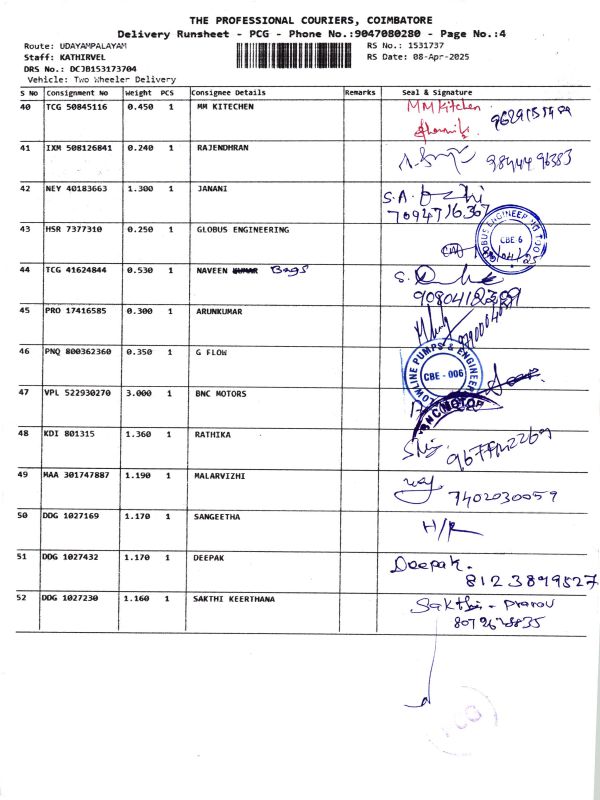 THE PROFESSIONAL COURIERS, COIMBATORE
Delivery Runsheet - PCG - Phone No.:9047080280 - Page No.:4
Route: UDAYAMPALAYAM RS No.: 1531737
Staff: KATHIRVEL RS Date: 08-Apr-2025
DRS No.: DCJB153173704
Vehicle: Two Wheeler Delivery
S No Consignment No Weight PCS Consignee Details Remarks Seal & Signature
40 TCG 50845116 0.450 1 MM KITECHEN MM Kitchen
41 IXM 508126841 0.240 1 RAJENDHRAN 9894496383
42 NEY 40183663 1.300 1 JANANI S.A.
7094716367
43 HSR 7377310 0.250 1 GLOBUS ENGINEERING CBE 6
44 TCG 41624844 0.530 1 NAVEEN KUMAR Bags S.
45 PRO 17416585 0.300 1 ARUNKUMAR
46 PNQ 800362360 0.350 1 G FLOW FLOWLINE PUMPS & ENGINEER
CBE - 006
47 VPL 522930270 3.000 1 BNC MOTORS BNC MOTOR
48 KDI 801315 1.360 1 RATHIKA
49 MAA 301747887 1.190 1 MALARVIZHI
7402030059
50 DDG 1027169 1.170 1 SANGEETHA H/R
51 DDG 1027432 1.170 1 DEEPAK Deepak.
8123899527
52 DDG 1027230 1.160 1 SAKTHI KEERTHANA Sakthi -